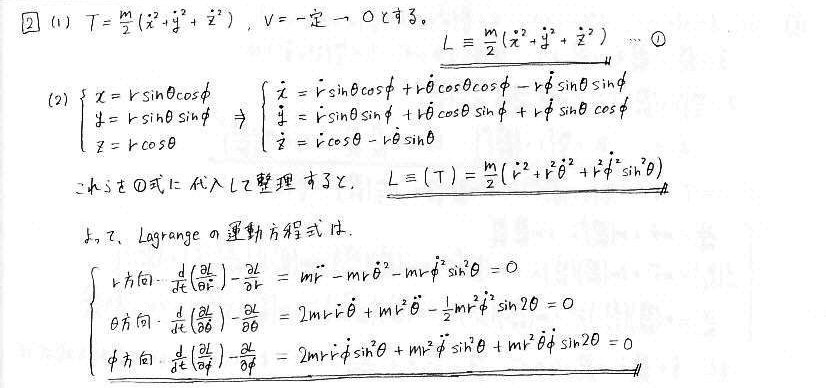 2 (1) T = m/2 (ẋ² + ẏ² + ż²), V = 一定 → 0とする。
L ≡ m/2 (ẋ² + ẏ² + ż²) … ①
(2) { x = r sinθ cosφ ⇒ { ẋ = ṙ sinθ cosφ + rθ̇ cosθ cosφ − rφ̇ sinθ sinφ
y = r sinθ sinφ ẏ = ṙ sinθ sinφ + rθ̇ cosθ sinφ + rφ̇ sinθ cosφ
z = r cosθ ż = ṙ cosθ − rθ̇ sinθ
これらを①式に代入して整理すると、 L ≡ (T) = m/2 (ṙ² + r²θ̇² + r²φ̇² sin²θ)
よって、Lagrangeの運動方程式は、
{ r方向・ d/dt(∂L/∂ṙ) − ∂L/∂r = mr̈ − mrθ̇² − mrφ̇² sin²θ = 0
θ方向・ d/dt(∂L/∂θ̇) − ∂L/∂θ = 2mrṙθ̇ + mr²θ̈ − 1/2 mr²φ̇² sin2θ = 0
φ方向・ d/dt(∂L/∂φ̇) − ∂L/∂φ = 2mrṙφ̇ sin²θ + mr²φ̈ sin²θ + mr²θ̇φ̇ sin2θ = 0